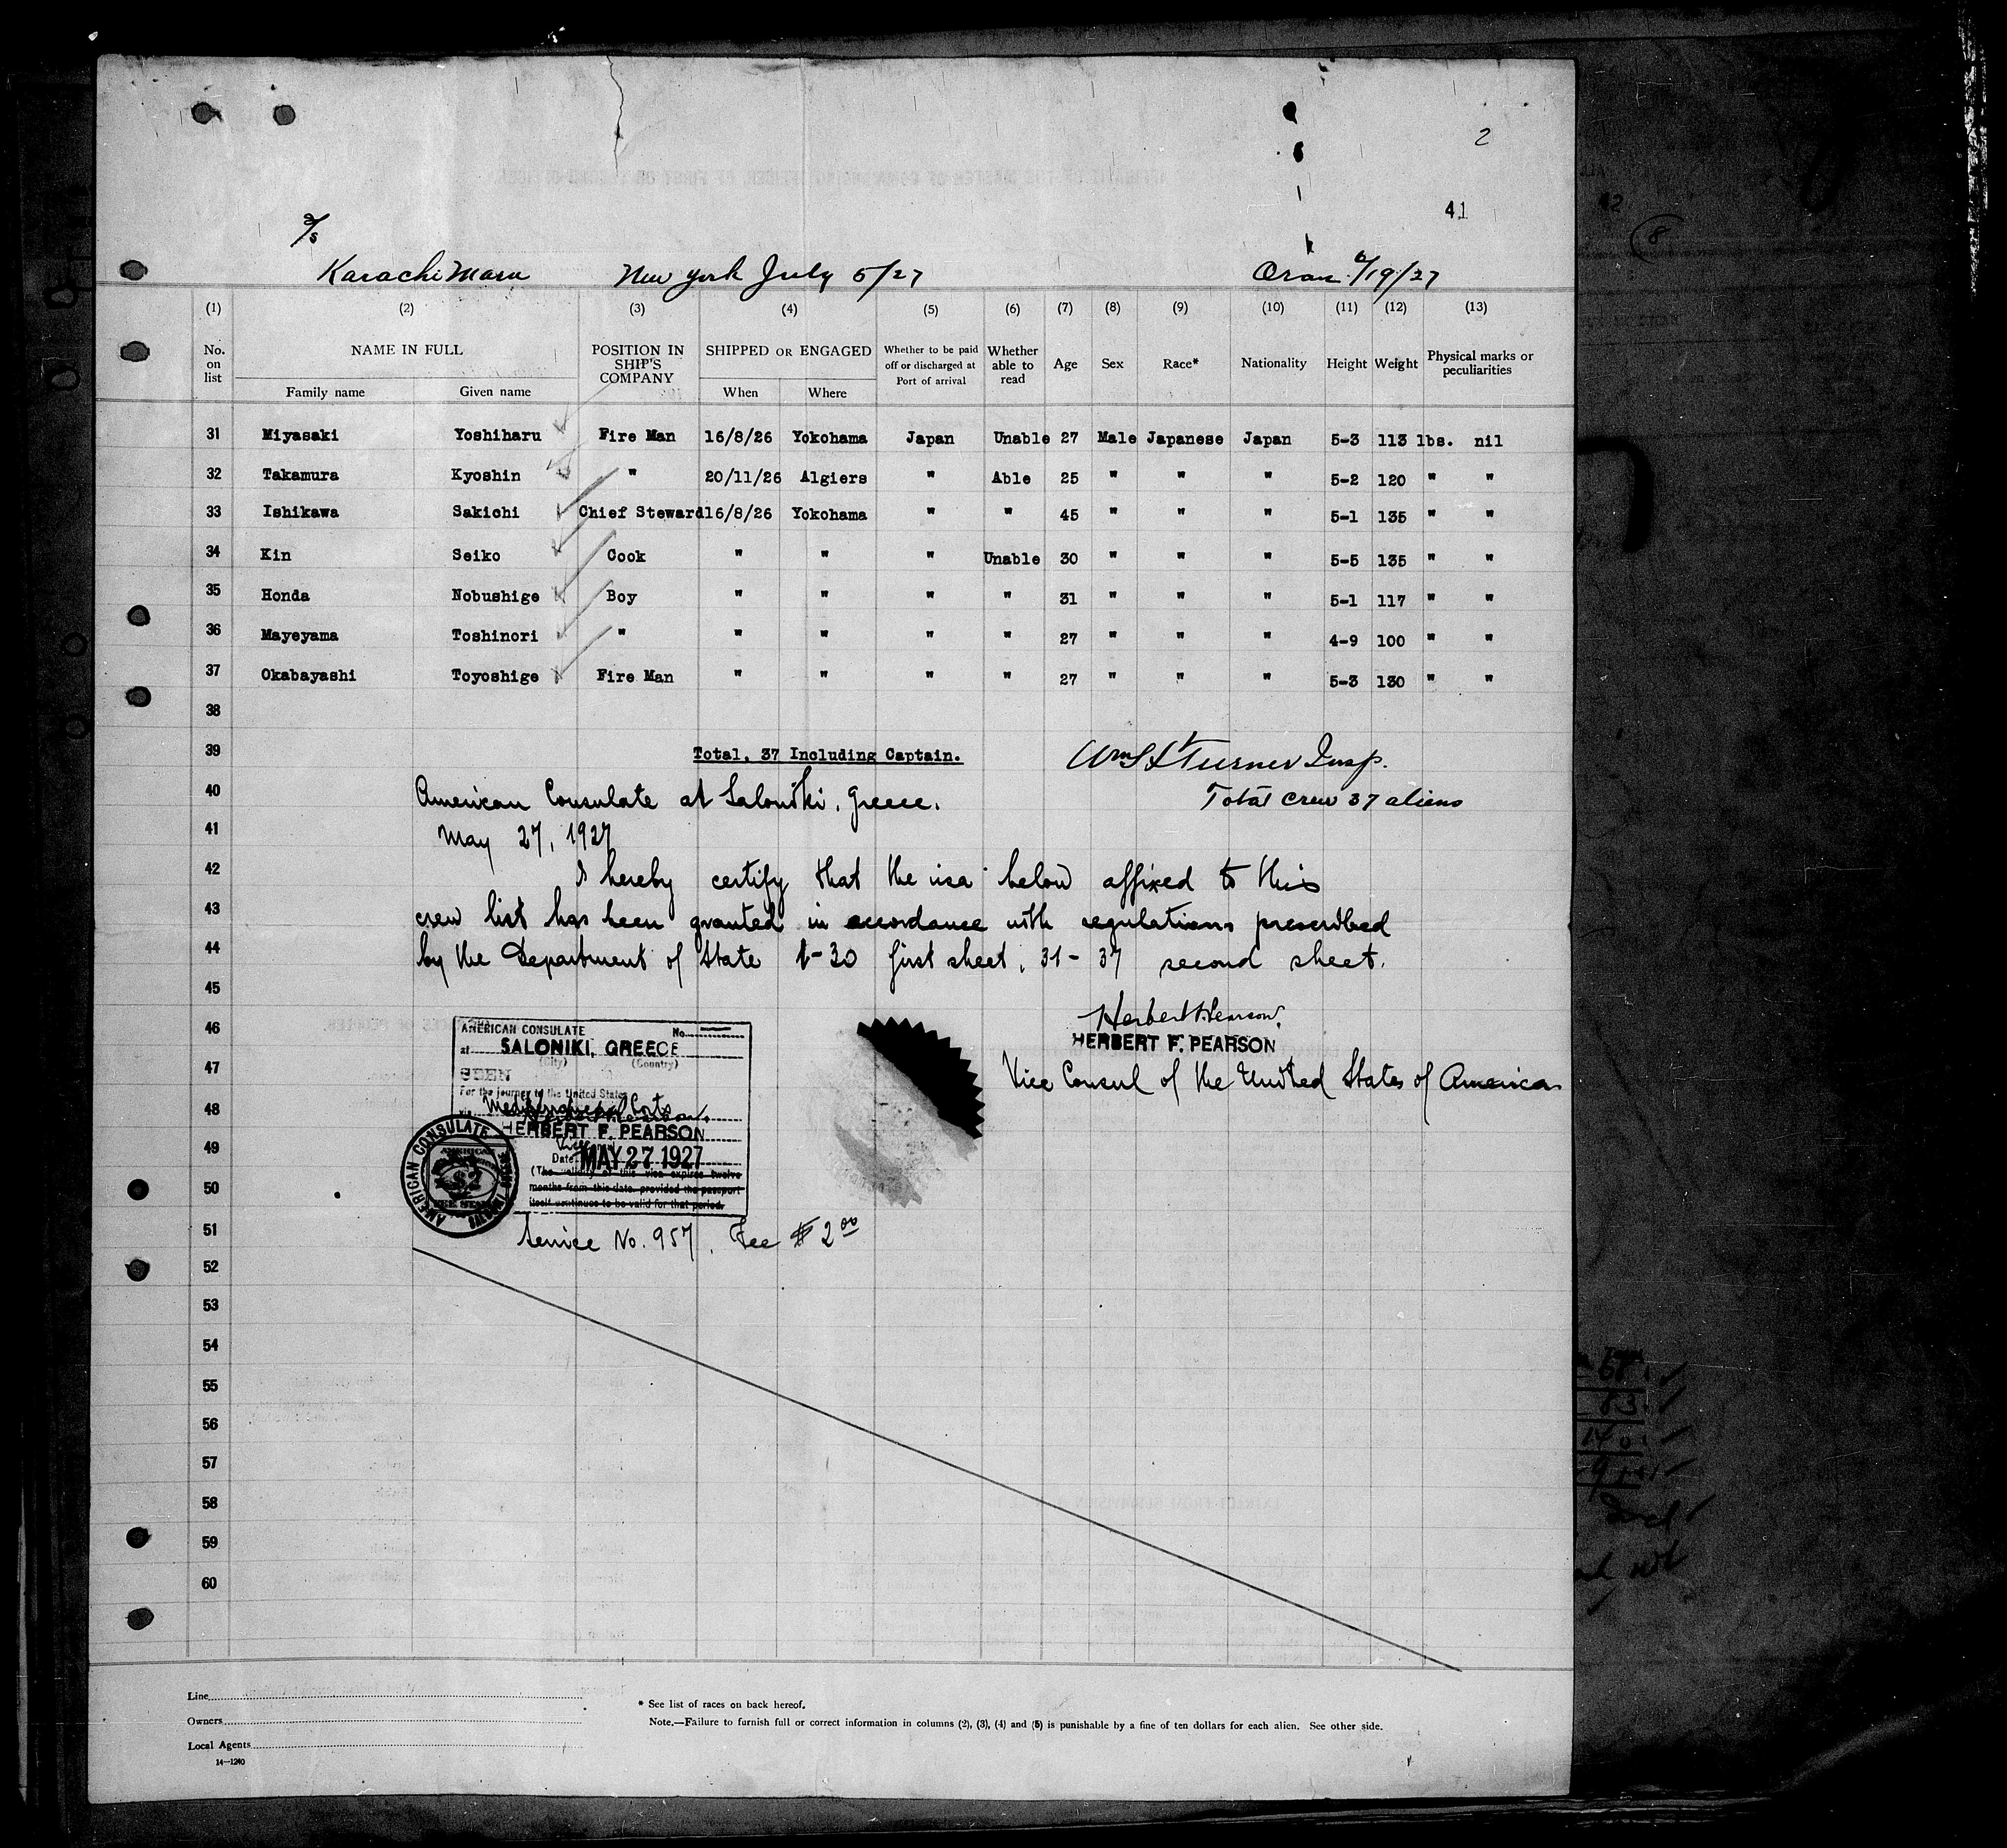 2
41
S/S
Karachi Maru New York July 5/27 Oran 6/19/27
(1) (2) (3) (4) (5) (6) (7) (8) (9) (10) (11) (12) (13)
No. on list NAME IN FULL POSITION IN SHIP'S COMPANY SHIPPED OR ENGAGED Whether to be paid off or discharged at Port of arrival Whether able to read Age Sex Race* Nationality Height Weight Physical marks or peculiarities
Family name Given name When Where
31 Miyasaki Yoshiharu Fire Man 16/8/26 Yokohama Japan Unable 27 Male Japanese Japan 5-3 113 lbs. nil
32 Takamura Kyoshin " 20/11/26 Algiers " Able 25 " " " 5-2 120 " "
33 Ishikawa Sakichi Chief Steward 16/8/26 Yokohama " " 45 " " " 5-1 135 " "
34 Kin Seiko Cook " " " Unable 30 " " " 5-5 135 " "
35 Honda Nobushige Boy " " " " 31 " " " 5-1 117 " "
36 Mayeyama Toshinori " " " " " 27 " " " 4-9 100 " "
37 Okabayashi Toyoshige Fire Man " " " " 27 " " " 5-3 130 " "
38
39 Total, 37 Including Captain. Turner Insp.
40 American Consulate at Saloniki, Greece. Total crew 37 aliens
41 May 27, 1927
42 I hereby certify that the visa below affixed to this
43 crew list has been granted in accordance with regulations prescribed
44 by the Department of State 1-30 first sheet, 31-37 second sheet.
45
46 Herbert F. Pearson
HERBERT F. PEARSON
47 Vice Consul of the United States of America
AMERICAN CONSULATE No.
at SALONIKI, GREECE
(City) (Country)
SEEN
For the journey to the United States
via
48
HERBERT F. PEARSON
49
Vice
Date MAY 27 1927
(The validity of this vise expires twelve
50 months from this date provided the passport
itself continues to be valid for that period.
AMERICAN CONSULATE
$2
51 Service No. 957, Fee $ 2.00
52
53
54
55
56
57
58
59
60
Line
Owners
Local Agents
14—1240
* See list of races on back hereof.
Note.—Failure to furnish full or correct information in columns (2), (3), (4) and (5) is punishable by a fine of ten dollars for each alien. See other side.